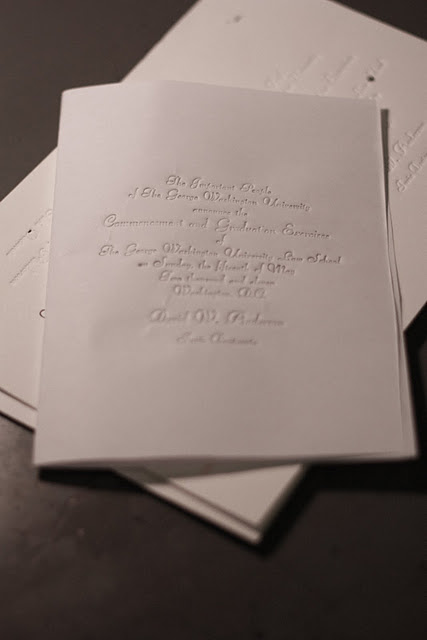 The Important People
of The George Washington University
announce the
Commencement and Graduation Exercises
of
The George Washington University Law School
on Sunday, the fifteenth of May
Two thousand and eleven
Washington, D.C.
David W.